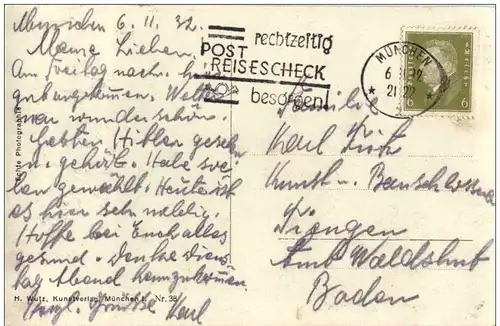 München 6.11.32.
Meine Lieben.
Am Freitag nach
gut angekommen. Wetter
war wunderschön.
Hitler gesehen
u. gehört. Habe
gewählt. Heute ist
es hier sehr neblig.
Hoffe bei Euch alles
gesund. Denke Diens-
tag Abend heimzukommen.
Herzl. Grüße Karl
rechtzeitig
POST
REISESCHECK
besorgen!
MÜNCHEN
6
6
Familie
Karl
Kunst u. Bauschlosserei
Tiengen
Amt Waldshut
Baden
Echte Photographie
H. Wutz, Kunstverlag, München Nr. 38